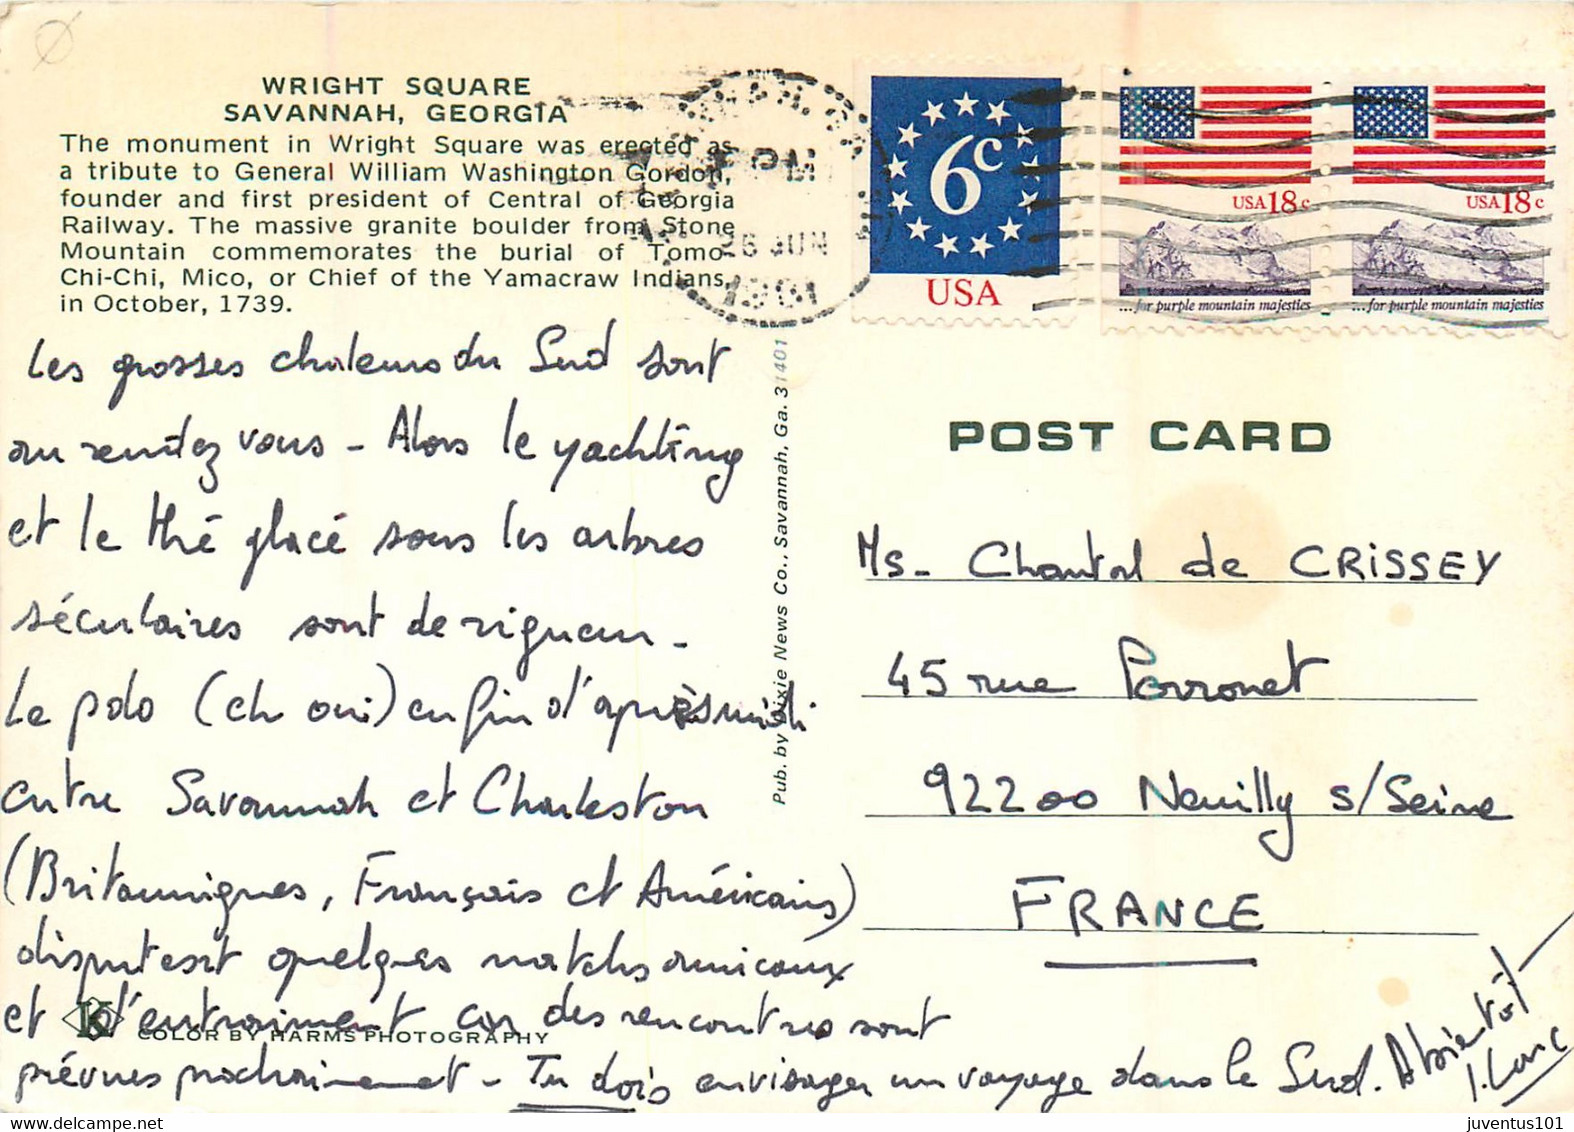 WRIGHT SQUARE
SAVANNAH, GEORGIA
The monument in Wright Square was erected as
a tribute to General William Washington Gordon,
founder and first president of Central of Georgia
Railway. The massive granite boulder from Stone
Mountain commemorates the burial of Tomo-
Chi-Chi, Mico, or Chief of the Yamacraw Indians,
in October, 1739.
PM
26 JUN
1981
6c
USA
USA 18c
...for purple mountain majesties
USA 18c
...for purple mountain majesties
Les grosses chaleurs du Sud sont
au rendez vous - Alors le yachting
et le thé glacé sous les arbres
séculaires sont de rigueur -
Le polo (eh oui) en fin d'après midi
entre Savannah et Charleston
(Britanniques, Français et Américains)
disputent quelques matchs amicaux
et d'entraiment car des rencontres sont
prévues prochainement - Tu dois envisager un voyage dans le Sud. A bientôt
COLOR BY HARMS PHOTOGRAPHY
Pub. by Dixie News Co., Savannah, Ga. 31401
POST CARD
Ms - Chantal de CRISSEY
45 rue Perronet
92200 Neuilly s/Seine
FRANCE
juventus101